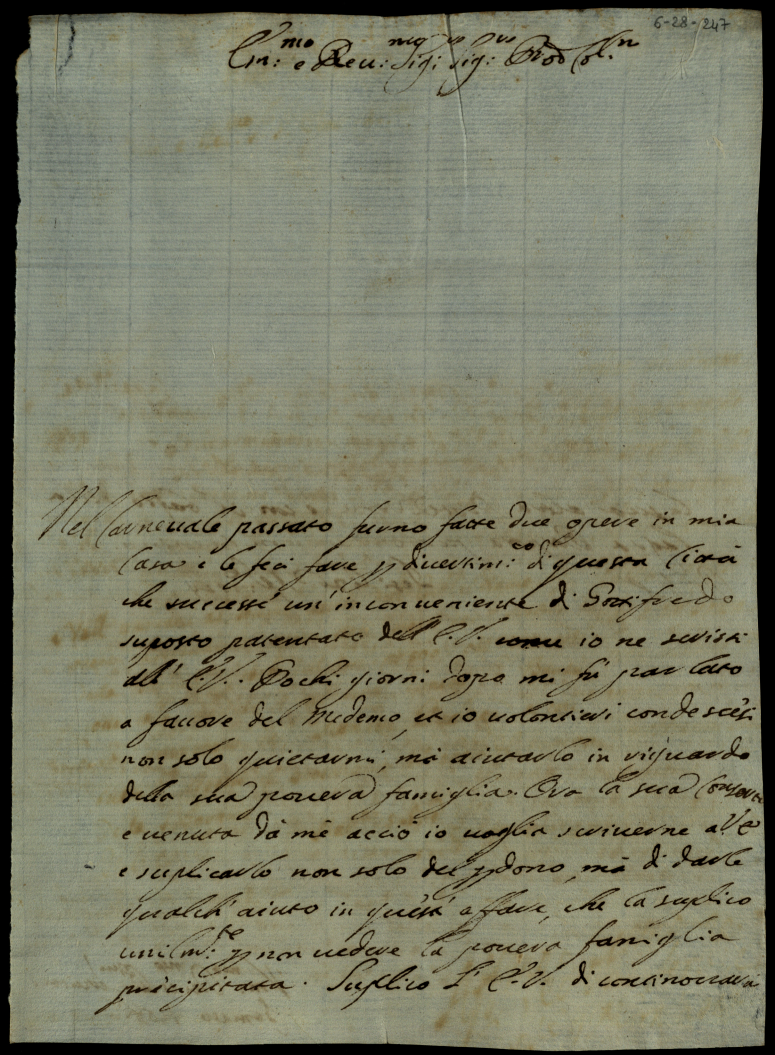 6-28-247
Em:mo e Reu: Sig: Sig: Pron Col.n
Nel Carneuale passato furno fatte due opere in mia
Casa e le feci fare p diuertim:to di questa Città
che successe un' inconueniente di Gottifredo
suposto patentato dell' E.V. come io ne scrissi
all' E.V. Pochi giorni dopo mi fù parlato
a fauore del medemo, et io uolontieri condescesi
non solo quietarmi, mà aiutarlo in riguardo
della sua pouera famiglia. Ora la sua Consorte
e uenuta dà me acciò io uoglia scriuerne a V.E
e suplicarlo non solo del pdono, mà di darle
qualch' aiuto in quest' affare, che la suplico
umilm:te p non uedere la pouera famiglia
precipitata. Suplico L' E.V. di continouarmi